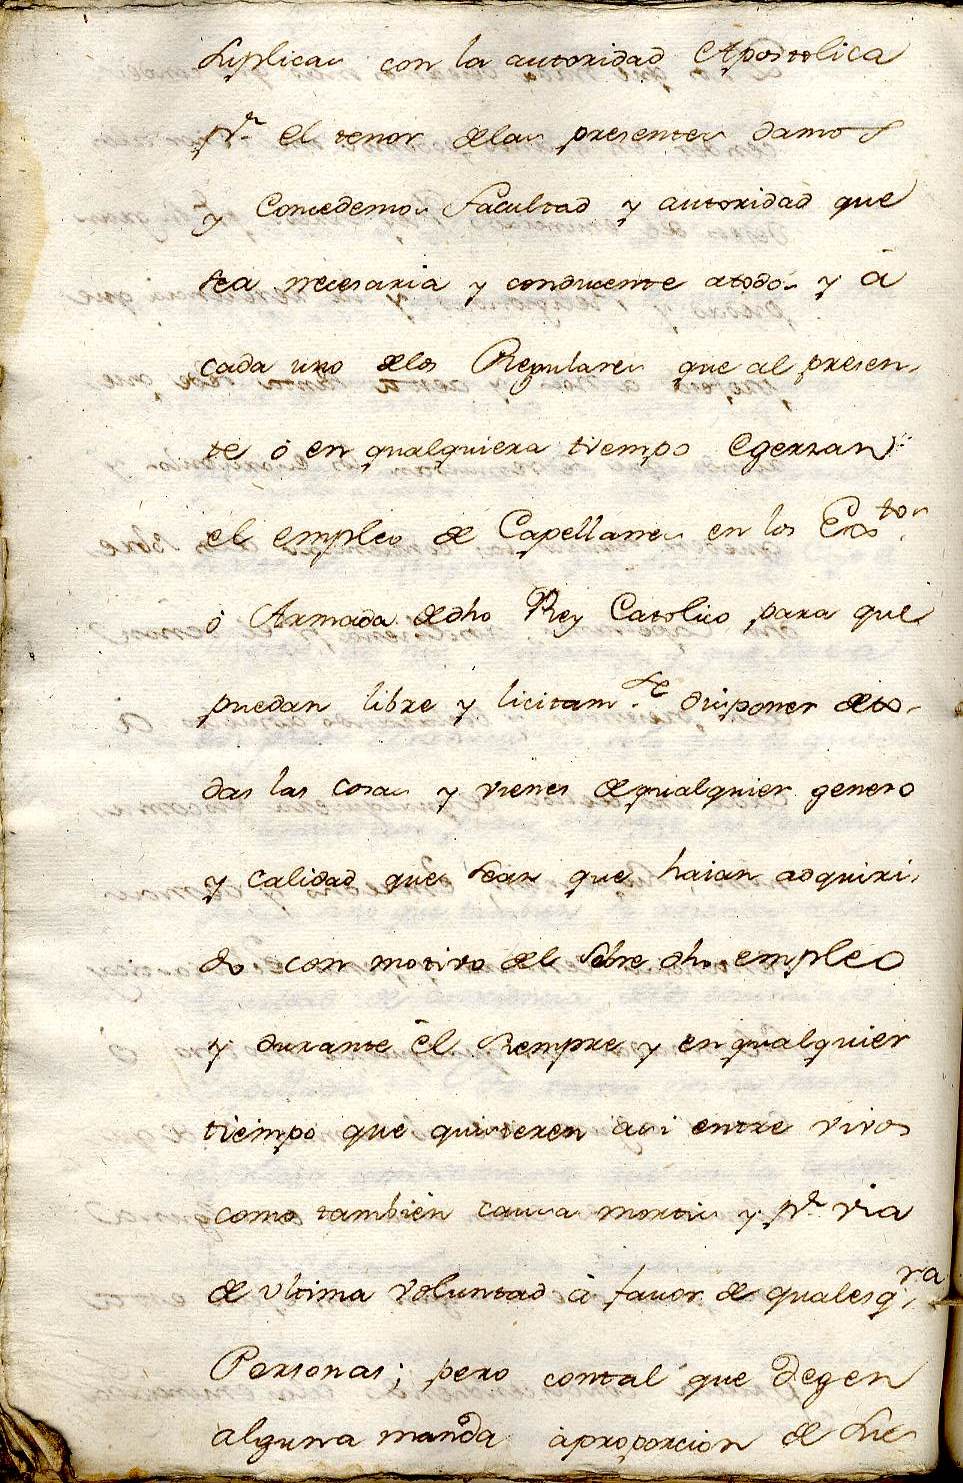 suplicas con la autoridad Apostolica
pr. el tenor delas presentes damos
y Concedemos facultad y autoridad que
sea necesaria y conducente atodos y á
cada uno delos Regulares que al presen-
te ó en qualquiera tiempo Egerzan
el empleo de Capellanes en los Extos.
ó Armada dedho Rey Catolico para que
puedan libre y licitamte. disponer deto-
das las cosas y vienes dequalquier genero
y calidad que sean que haian adquiri-
do con motivo del sobre dho empleo
y durante él siempre y en qualquier
tiempo que quisieren asi entre vivos
como tambien causa mortis y pr. via
de ultima voluntad á favor de qualesqra.
Personas; pero contal que degen
alguna manda aproporcion de sus